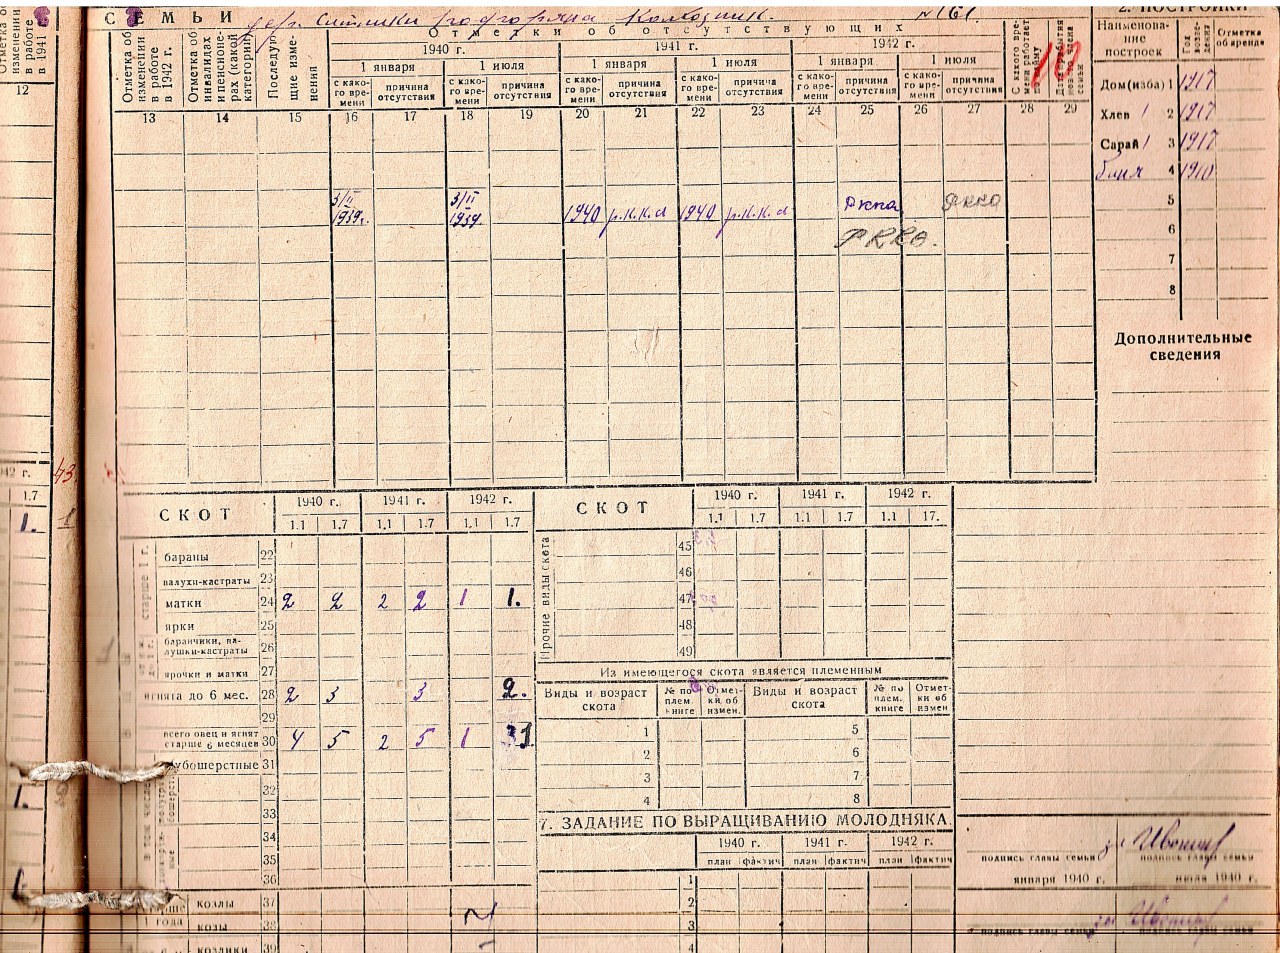 СЕМЬИ
Колхозник. № 161.
2. ПОСТРОЙКИ
Отметки об отсутствующих
1940 г. 1941 г. 1942 г.
1 января 1 июля 1 января 1 июля 1 января 1 июля
Отметка об изменении в работе в 1941 г.
Отметка об изменении в работе в 1942 г.
Отметка об инвалидах и пенсионерах (какой категории)
Последующие изменения
с какого времени причина отсутствия с какого времени причина отсутствия с какого времени причина отсутствия с какого времени причина отсутствия с какого времени причина отсутствия с какого времени причина отсутствия
12 13 14 15 16 17 18 19 20 21 22 23 24 25 26 27 28 29
3/II 3/II
1939г. 1939. 1940 р.к.к.а 1940 р.к.к.а ркка ркка
РККА.
Наименование построек Год возведения Отметка об аренде
Дом(изба) 1 1917
Хлев 1 2 1917
Сарай 1 3 1917
баня 4 1910
5
6
7
8
Дополнительные
сведения
43.
1.7
1. 1
СКОТ 1940 г. 1941 г. 1942 г.
1.1 1.7 1.1 1.7 1.1 1.7
старше 1 г.
бараны 22
валухи-кастраты 23
матки 24 2 2 2 2 1 1.
ярки 25
баранчики, валушки-кастраты 26
ярочки и матки 27
ягнята до 6 мес. 28 2 3 3 2.
29
всего овец и ягнят старше 6 месяцев 30 4 5 2 5 1
грубошерстные 31
32
33
34
35
36
козлы 37
козы 38
козлики 39
СКОТ 1940 г. 1941 г. 1942 г.
1.1 1.7 1.1 1.7 1.1 17.
Прочие виды скота
45
46
47
48
49
Из имеющегося скота является племенным
Виды и возраст скота № по плем. книге Отметки об измен. Виды и возраст скота № по плем. книге Отметки об измен
1 5
2 6
3 7
4 8
7. ЗАДАНИЕ ПО ВЫРАЩИВАНИЮ МОЛОДНЯКА.
1940 г. 1941 г. 1942 г.
план фактич план фактич план фактич
1
2
3
4
подпись главы семьи подпись главы семьи
января 1940 г. июля 1940 г.
подпись главы семьи подпись главы семьи